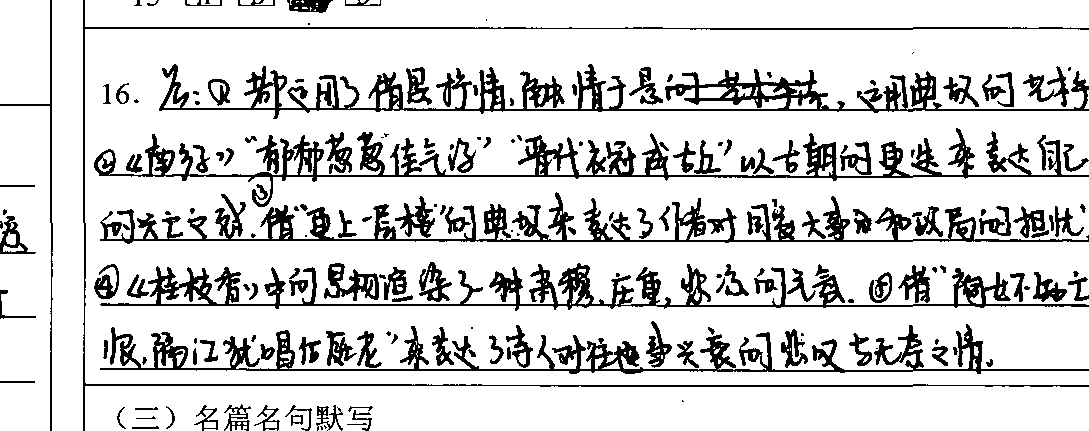 16. 答:① 都运用了借景抒情,融情于景的艺术手法,运用典故的艺术手
②《南乡子》"郁郁葱葱佳气浮""晋代衣冠成古丘"以古朝的更迭来表达自己
的兴亡之感.③借"更上一层楼"的典故来表达了作者对国家大事和政局的担忧,
④《桂枝香》中的景物渲染了一种肃穆、庄重,悲凉的气氛.⑤借"商女不知亡
恨,隔江犹唱后庭花"来表达了诗人对往事兴衰的悲叹与无奈之情。
(三)名篇名句默写